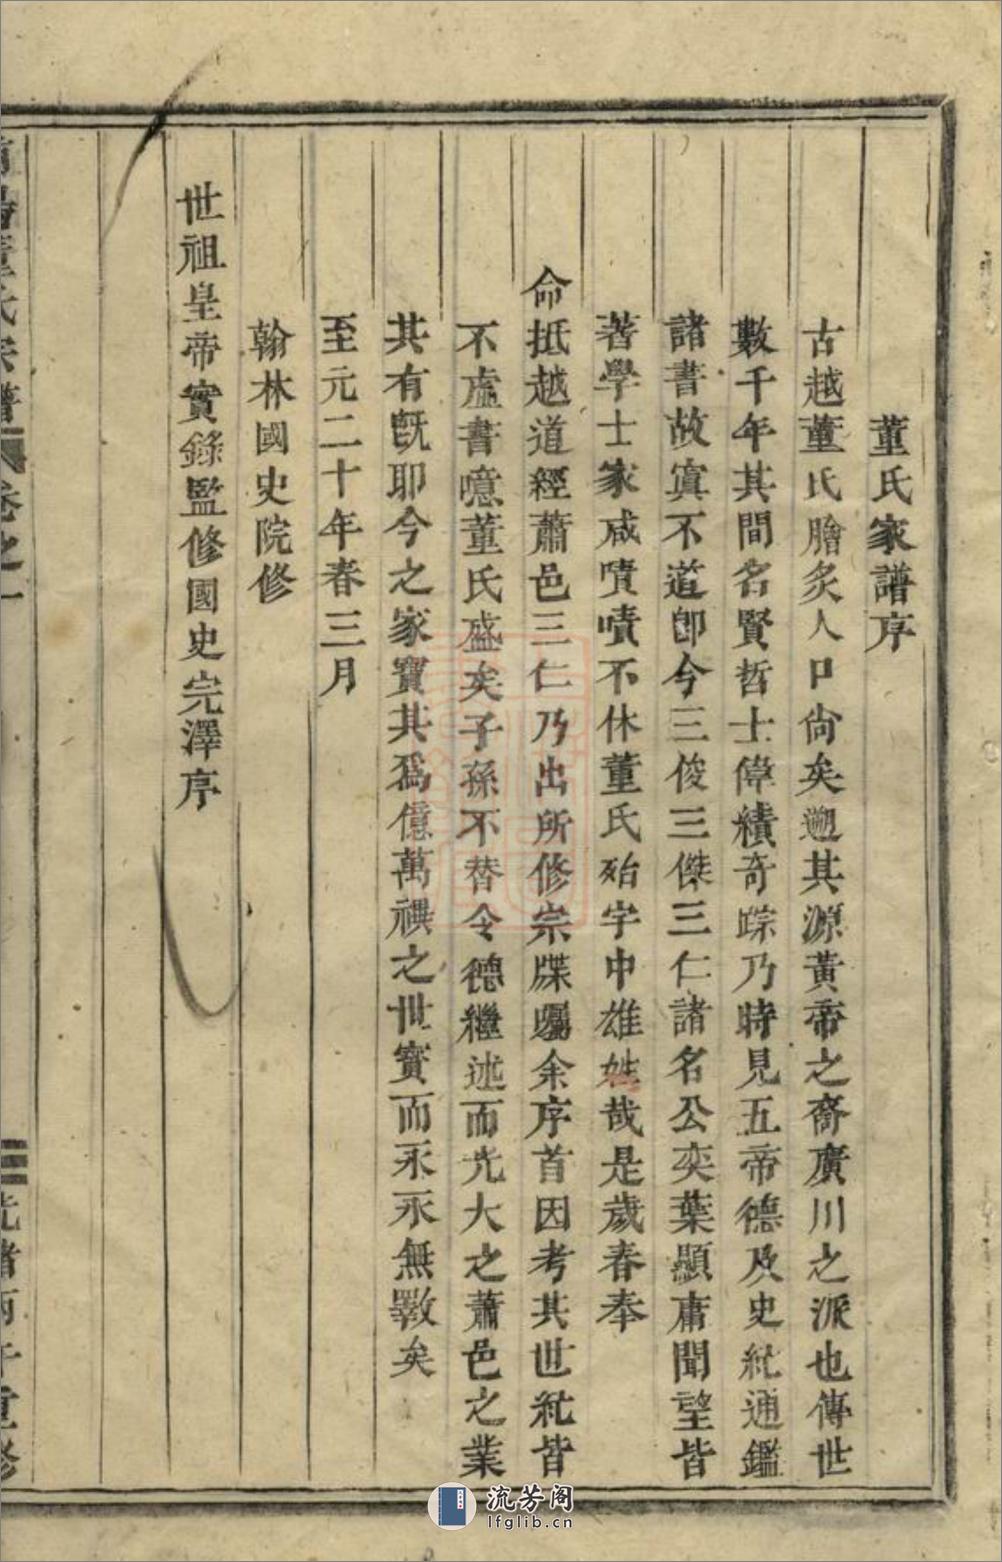 董氏家譜序
古越董氏膾炙人口尙矣遡其源黃帝之裔廣川之派也傳世
數千年其間名賢哲士偉績奇踪乃時見五帝德及史紀通鑑
諸書故寘不道卽今三俊三傑三仁諸名公奕葉顯庸聞望皆
著學士家咸嘖嘖不休董氏殆宇中雄姓哉是歲春奉
命抵越道經蕭邑三仁乃出所修宗牒囑余序首因考其世紀皆
不虛書噫董氏盛矣子孫不替令德繼述而光大之蕭邑之業
其有旣耶今之家寶其爲億萬禩之世寶而永永無斁矣
至元二十年春三月
翰林國史院修
世祖皇帝實錄監修國史完澤序
董氏宗譜 卷之一 光緒丙午重修
流芳阁
lfglib.cn